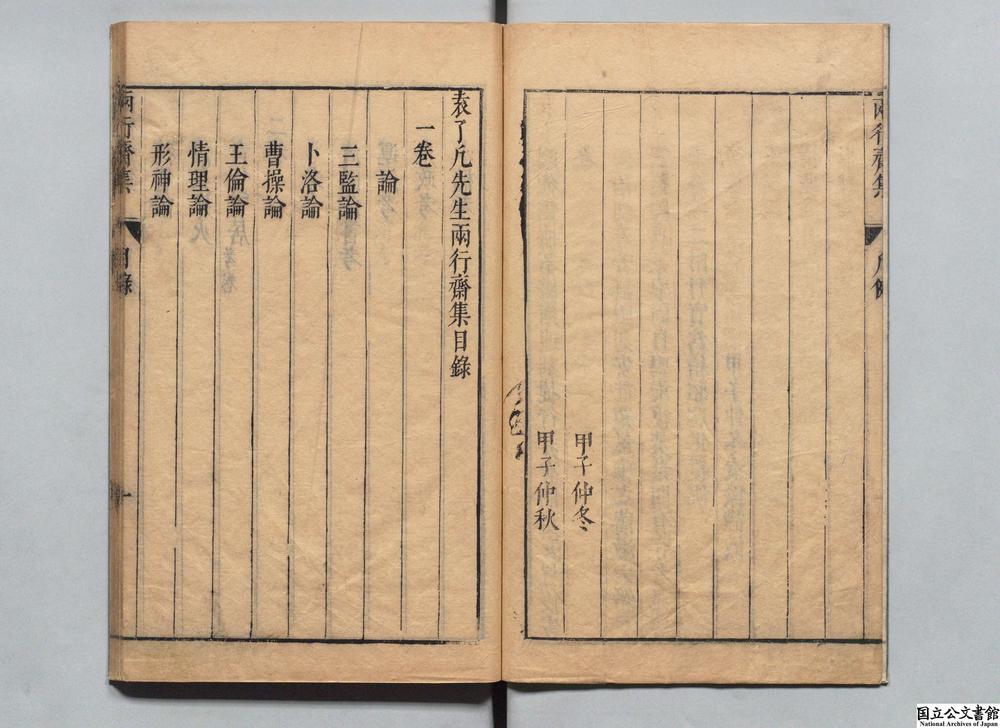 兩行齋集
甲子仲冬
甲子仲秋
袁了凡先生兩行齋集目錄
一卷
論
三監論
卜洛論
曹操論
王倫論
情理論
形神論
兩行齋集 目錄 一
国立公文書館
National Archives of Japan